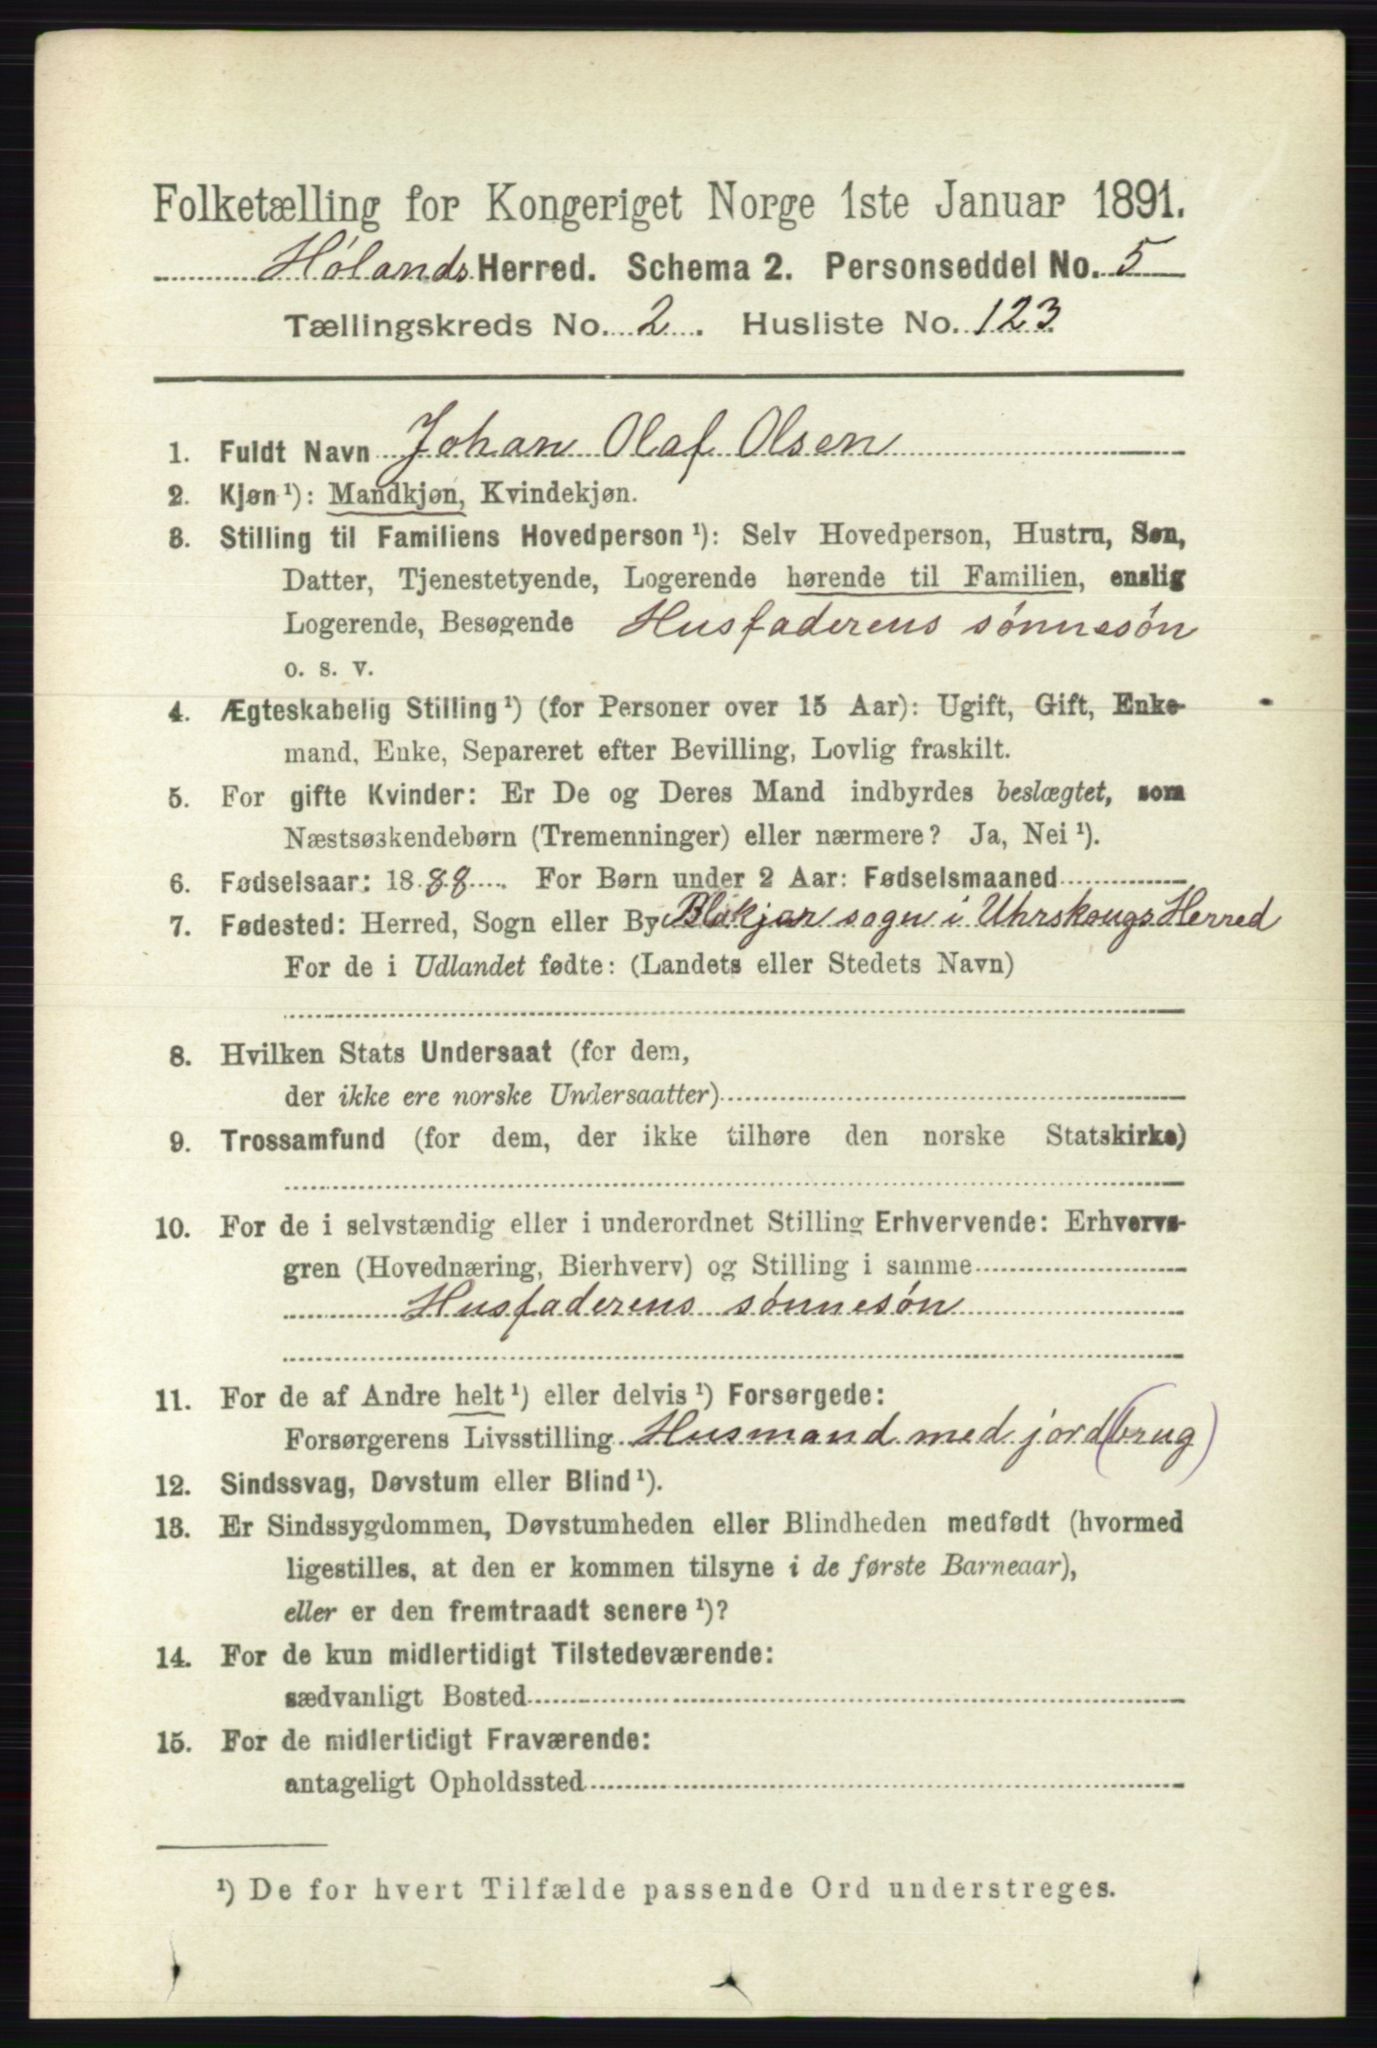 Folketælling for Kongeriget Norge 1ste Januar 1891.
Hølands Herred. Schema 2. Personseddel No. 5
Tællingskreds No. 2. Husliste No. 123
1. Fuldt Navn Johan Olaf Olsen
2. Kjøn ¹): Mandkjøn, Kvindekjøn.
3. Stilling til Familiens Hovedperson ¹): Selv Hovedperson, Hustru, Søn,
Datter, Tjenestetyende, Logerende hørende til Familien, enslig
Logerende, Besøgende Husfaderens sønnesøn
o. s. v.
4. Ægteskabelig Stilling ¹) (for Personer over 15 Aar): Ugift, Gift, Enke-
mand, Enke, Separeret efter Bevilling, Lovlig fraskilt.
5. For gifte Kvinder: Er De og Deres Mand indbyrdes beslægtet, som
Næstsøskendebørn (Tremenninger) eller nærmere? Ja, Nei ¹).
6. Fødselsaar: 1888. For Børn under 2 Aar: Fødselsmaaned
7. Fødested: Herred, Sogn eller By Blakjær sogn i Uhrskougs Herred
For de i Udlandet fødte: (Landets eller Stedets Navn)
8. Hvilken Stats Undersaat (for dem,
der ikke ere norske Undersaatter)
9. Trossamfund (for dem, der ikke tilhøre den norske Statskirke)
10. For de i selvstændig eller i underordnet Stilling Erhvervende: Erhvervs-
gren (Hovednæring, Bierhverv) og Stilling i samme
Husfaderens sønnesøn
11. For de af Andre helt ¹) eller delvis ¹) Forsørgede:
Forsørgerens Livsstilling Husmand med jord(brug)
12. Sindssvag, Døvstum eller Blind ¹).
13. Er Sindssygdommen, Døvstumheden eller Blindheden medfødt (hvormed
ligestilles, at den er kommen tilsyne i de første Barneaar),
eller er den fremtraadt senere ¹)?
14. For de kun midlertidigt Tilstedeværende:
sædvanligt Bosted
15. For de midlertidigt Fraværende:
antageligt Opholdssted
¹) De for hvert Tilfælde passende Ord understreges.